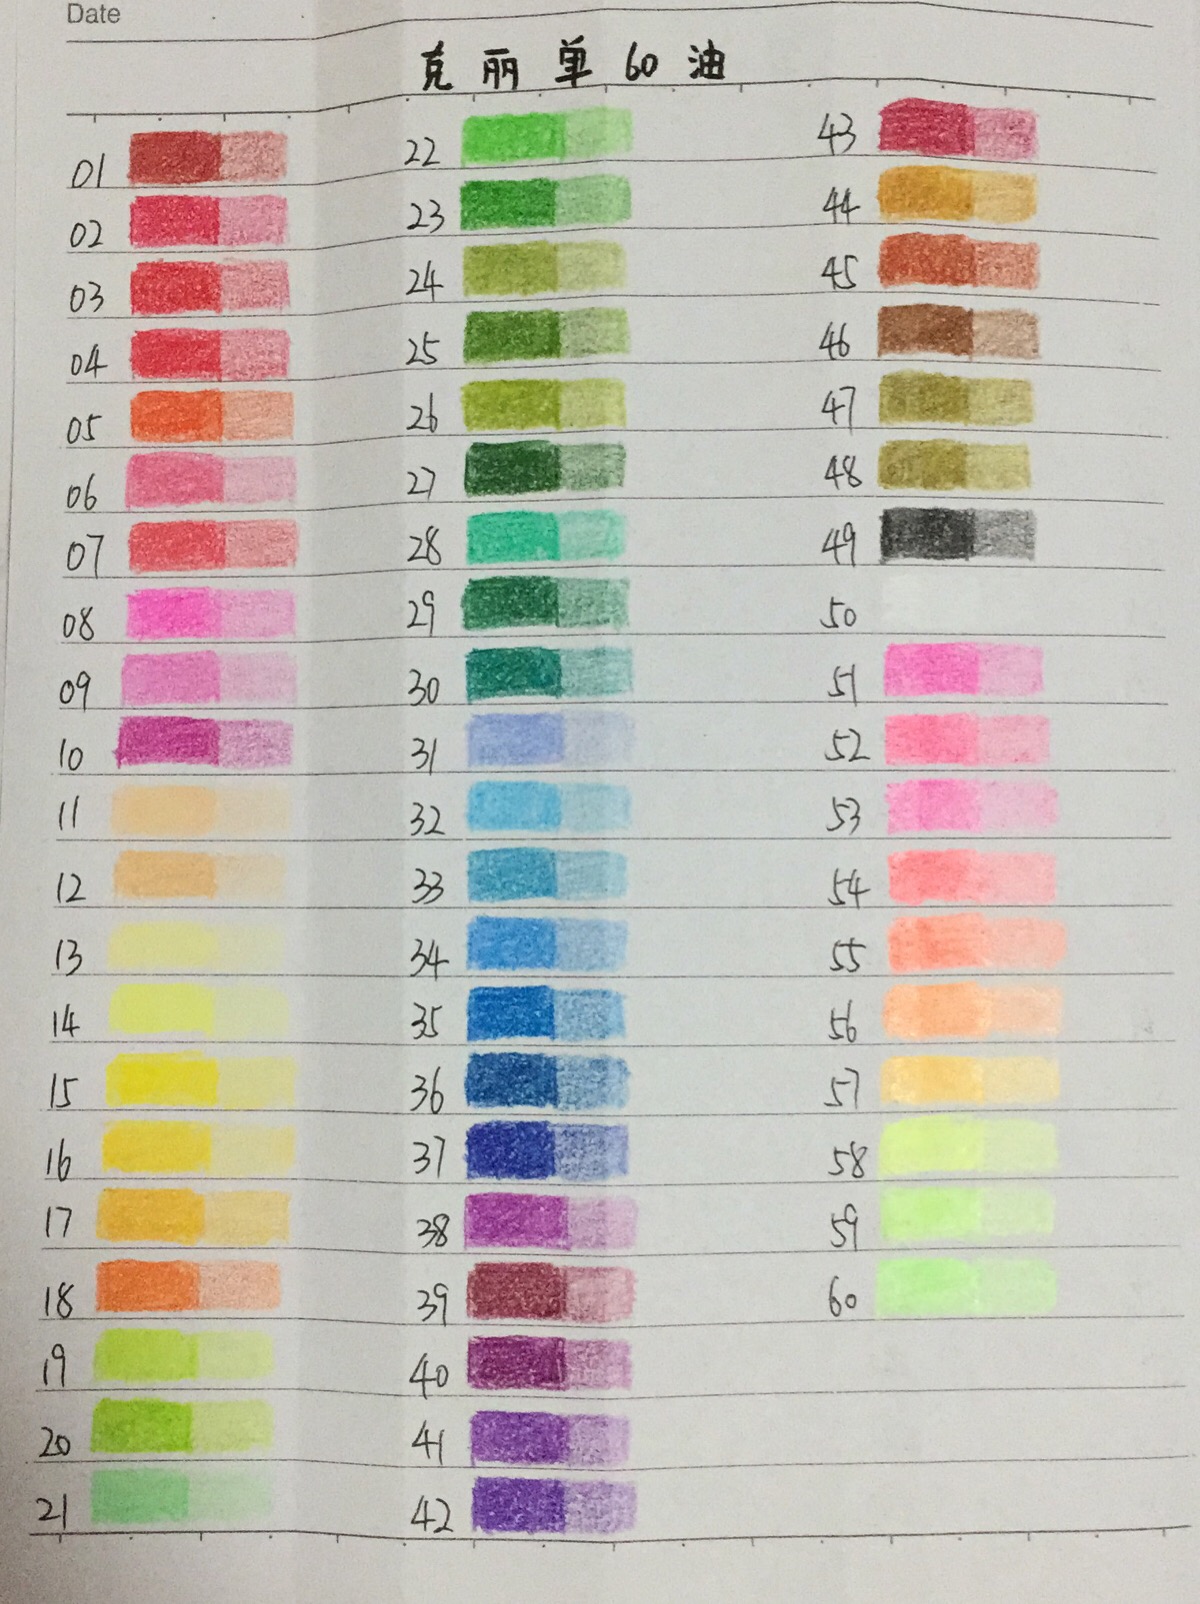 Date
克丽单60油
01
02
03
04
05
06
07
08
09
10
11
12
13
14
15
16
17
18
19
20
21
22
23
24
25
26
27
28
29
30
31
32
33
34
35
36
37
38
39
40
41
42
43
44
45
46
47
48
49
50
51
52
53
54
55
56
57
58
59
60